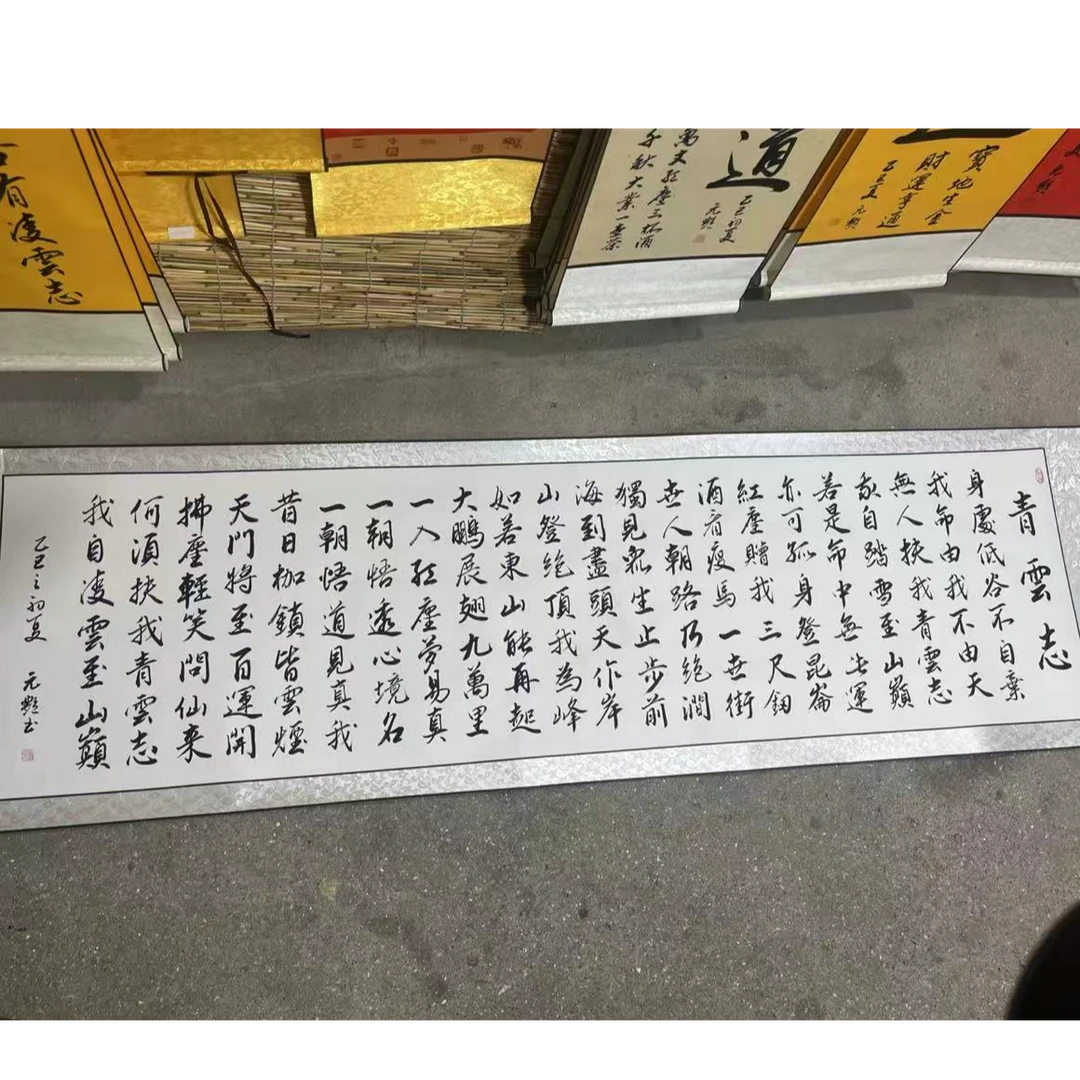 有凌雲志
道
萬丈紅塵三杯酒
千秋大業一壺茶
乙巳初夏
寶地生金
財運亨通
乙巳夏
青雲志
身處低谷不自棄
我命由我不由天
無人扶我青雲志
我自踏雪至山巔
若是命中無此運
亦可孤身登昆崙
紅塵贈我三尺釼
酒肴瘦馬一世街
世人朝路乃絕澗
獨見眾生止步前
海到盡頭天作岸
山登絕頂我為峰
如若東山能再起
大鵬展翅九萬里
一入紅塵夢易真
一朝悟透心境名
一朝悟道見真我
昔日枷鎖皆雲煙
天門將至百運開
拂塵輕笑問仙來
何須扶我青雲志
我自凌雲至山巔
乙巳之初夏 元魁書